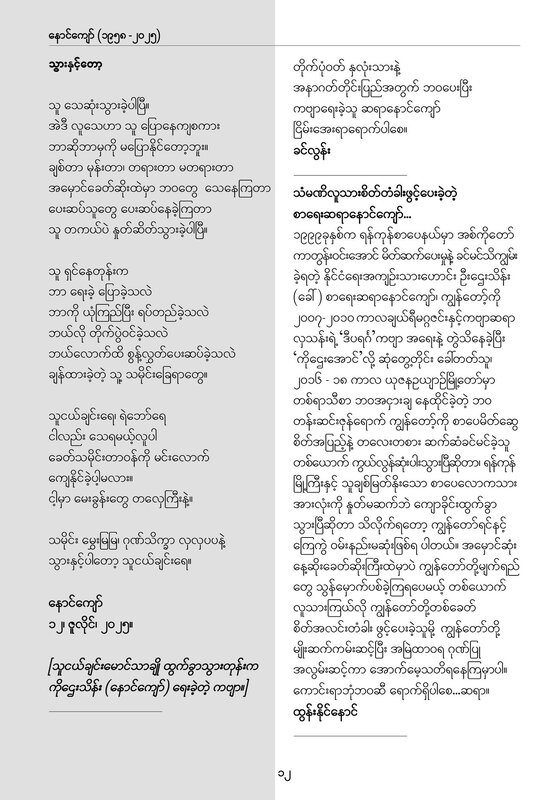 နောင်ကျော် (၁၉၅၈ - ၂၀၂၅)
သွားနှင့်တော့
သူ သေဆုံးသွားခဲ့ပါပြီ။
အဲဒီ လူသေဟာ သူ ပြောနေကျစကား
ဘာဆိုဘာမှကို မပြောနိုင်တော့ဘူး။
ချစ်တာ မုန်းတာ၊ တရားတာ မတရားတာ
အမှောင်ခေတ်ဆိုးထဲမှာ ဘဝတွေ သေနေကြတာ
ပေးဆပ်သူတွေ ပေးဆပ်နေခဲ့ကြတာ
သူ တကယ်ပဲ နှုတ်ဆိတ်သွားခဲ့ပါပြီ။
သူ ရှင်နေတုန်းက
ဘာ ရေးခဲ့ ပြောခဲ့သလဲ
ဘာကို ယုံကြည်ပြီး ရပ်တည်ခဲ့သလဲ
ဘယ်လို တိုက်ပွဲဝင်ခဲ့သလဲ
ဘယ်လောက်ထိ စွန့်လွှတ်ပေးဆပ်ခဲ့သလဲ
ချန်ထားခဲ့တဲ့ သူ့ သမိုင်းခြေရာတွေ။
သူငယ်ချင်းရေ၊ ရဲဘော်ရေ
ငါလည်း သေရမယ့်လူပါ
ခေတ်သမိုင်းတာဝန်ကို မင်းလောက်
ကျေနိုင်ခဲ့ပါ့မလား။
ငါ့မှာ မေးခွန်းတွေ တလှေကြီးနဲ့။
သမိုင်း မွှေးမြမြ၊ ဂုဏ်သိက္ခာ လှလှပပနဲ့
သွားနှင့်ပါတော့ သူငယ်ချင်းရေ။
နောင်ကျော်
၁၂၊ ဇူလိုင်၊ ၂၀၂၅။
[သူငယ်ချင်းမောင်သာချို ထွက်ခွာသွားတုန်းက
ကိုဌေးသိန်း (နောင်ကျော်) ရေးခဲ့တဲ့ ကဗျာ။]
တိုက်ပုံဝတ် နှလုံးသားနဲ့
အနာဂတ်တိုင်းပြည်အတွက် ဘဝပေးပြီး
ကဗျာရေးခဲ့သူ ဆရာနောင်ကျော်
ငြိမ်းအေးရာရောက်ပါစေ။
ခင်လွန်း
သံမဏိလူသားစိတ်တံခါးဖွင့်ပေးခဲ့တဲ့
စာရေးဆရာနောင်ကျော်...
၁၉၉၉ခုနှစ်က ရန်ကုန်စာပေနယ်မှာ အစ်ကိုတော်
ကာတွန်းဝင်းအောင် မိတ်ဆက်ပေးမှုနဲ့ ခင်မင်သိကျွမ်း
ခဲ့ရတဲ့ နိုင်ငံရေးအကျဉ်းသားဟောင်း ဦးဌေးသိန်း
(ခေါ်) စာရေးဆရာနောင်ကျော်၊ ကျွန်တော့်ကို
၂၀၀၇-၂၀၁၀ ကာလချယ်ရီမဂ္ဂဇင်းနှင့်ကဗျာဆရာ
လှသန်းရဲ့ 'ဒီပရင်္ဂ'ကဗျာ အရေးနဲ့ တွဲသိနေခဲ့ပြီး
'ကိုဌေးအောင်'လို့ ဆုံတွေ့တိုင်း ခေါ်တတ်သူ၊
၂၀၁၆ - ၁၈ ကာလ ယုဇနဥယျာဉ်မြို့တော်မှာ
တစ်ရာသီစာ ဘဝအငှားချ နေထိုင်ခဲ့တဲ့ ဘဝ
တန်းဆင်းဇုန်ရောက် ကျွန်တော့်ကို စာပေမိတ်ဆွေ
စိတ်အပြည့်နဲ့ တလေးတစား ဆက်ဆံခင်မင်ခဲ့သူ
တစ်ယောက် ကွယ်လွန်ဆုံးပါးသွားပြီဆိုတာ၊ ရန်ကုန်
မြို့ကြီးနှင့် သူချစ်မြတ်နိုးသော စာပေလောကသား
အားလုံးကို နှုတ်မဆက်ဘဲ ကျောခိုင်းထွက်ခွာ
သွားပြီဆိုတာ သိလိုက်ရတော့ ကျွန်တော်ရင်နင့်
ကြေကွဲ ဝမ်းနည်းမဆုံးဖြစ်ရ ပါတယ်။ အမှောင်ဆုံး
နေ့ဆိုးခေတ်ဆိုးကြီးထဲမှာပဲ ကျွန်တော်တို့မျက်ရည်
တွေ သွန်မှောက်ပစ်ခဲ့ကြရပေမယ့် တစ်ယောက်
လူသားကြယ်လို ကျွန်တော်တို့တစ်ခေတ်
စိတ်အလင်းတံခါး ဖွင့်ပေးခဲ့သူမို့ ကျွန်တော်တို့
မျိုးဆက်ကမ်းဆင့်ပြီး အမြဲထာဝရ ဂုဏ်ပြု
အလွမ်းဆင့်ကာ အောက်မေ့သတိရနေကြမှာပါ။
ကောင်းရာဘုံဘဝဆီ ရောက်ရှိပါစေ...ဆရာ။
ထွန်းနိုင်နောင်
၁၂